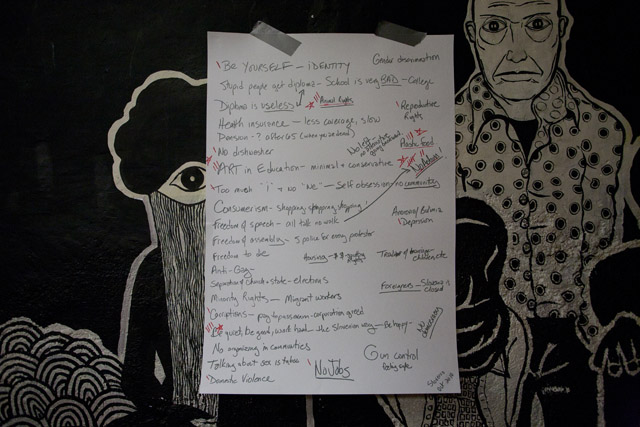 BE YOURSELF – IDENTITY
Gender discrimination
Stupid people get diploma – School is very BAD – College
Diploma is useless
Reproductive Rights
Health insurance – less coverage, slow
Pension – ? after 65 (when you're dead)
No dishwasher
No left
Plastic food
ART in Education – minimal + conservative
Too much "I" + no "WE" – Self obsession – no community
Consumerism – shopping shopping shopping!
Anorexia/Bulimia
Depression
Freedom of speech – all talk no walk
Freedom of assembly – 5 police for every protester
Freedom to die
Housing –
Anti-Gay –
Separation of church + state – elections
Foreigners – Slovenia is closed
Minority Rights – Migrant workers
Corruptions – corporation greed
No democracy
Be quiet, Be good, work hard – the Slovenian way – Be happy
No organizing in communities
Gun control
Talking about sex is taboo
NO JOBS
Domestic Violence
Slovenia